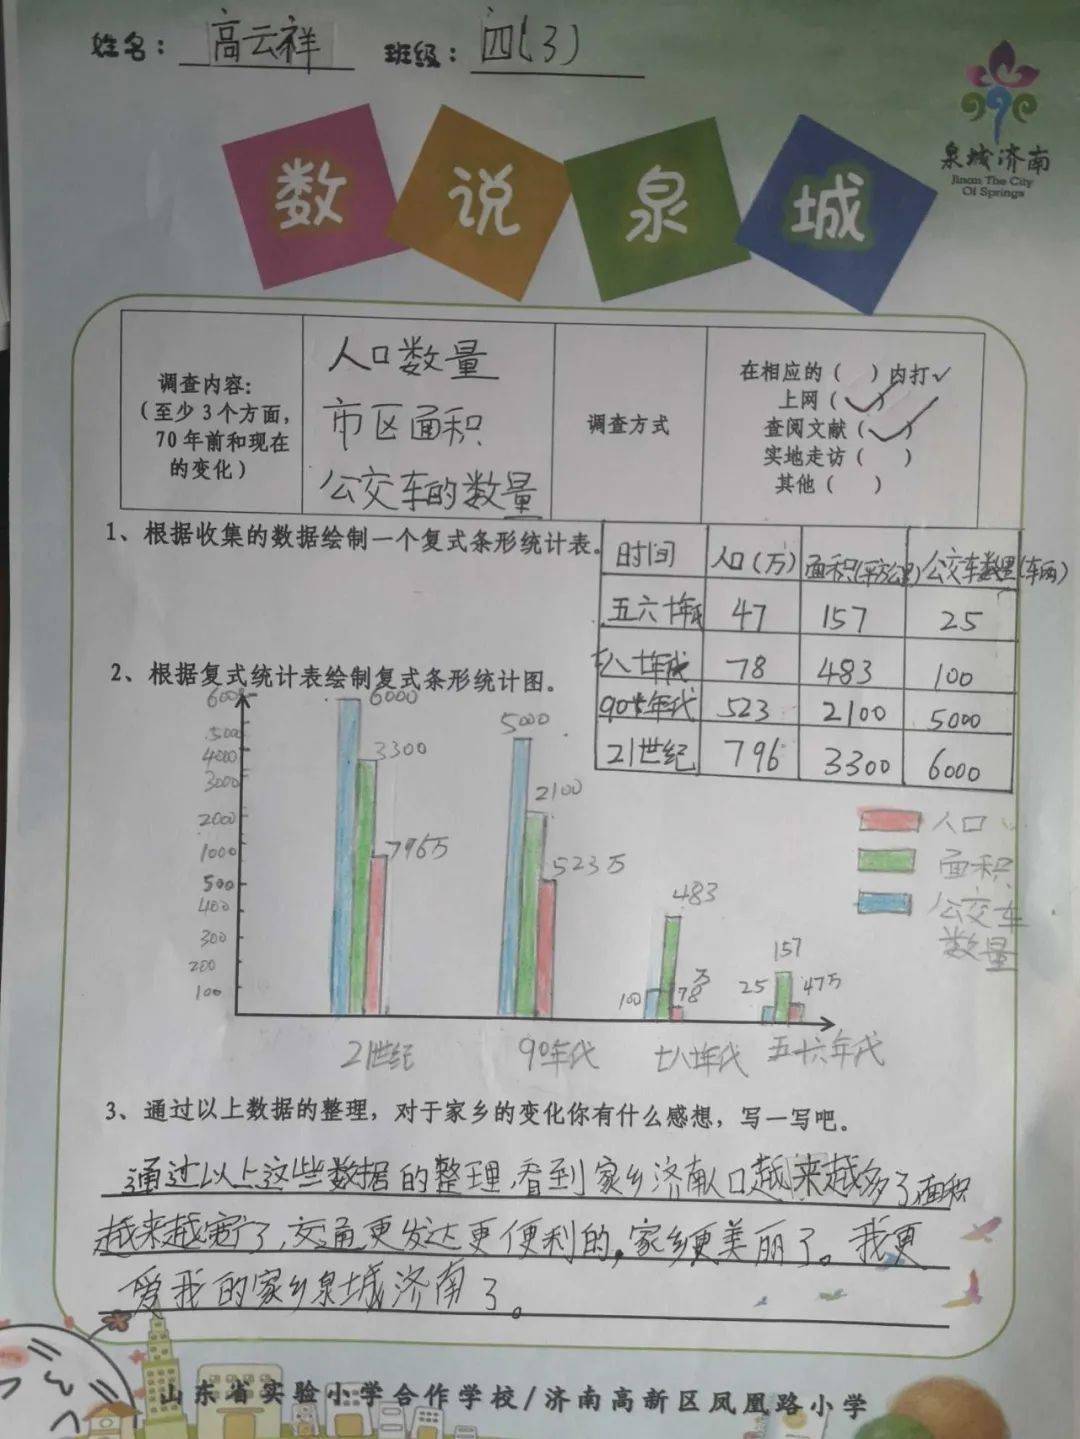 姓名：高云祥 班级：四(3)
泉城济南
Jinan The City
Of Springs
数说泉城
调查内容：
（至少3个方面，
70年前和现在
的变化）
人口数量
市区面积
公交车的数量
调查方式
在相应的（ ）内打✓
上网（✓）
查阅文献（✓）
实地走访（ ）
其他（ ）
1、根据收集的数据绘制一个复式条形统计表。
时间 人口(万) 面积(平方公里) 公交车数量(车两)
五六十年代 47 157 25
七八十年代 78 483 100
90年代 523 2100 5000
21世纪 796 3300 6000
2、根据复式统计表绘制复式条形统计图。
6000
5000
4000
3000
2000
1000
500
400
300
200
100
6000
3300
796万
5000
2100
523万
100
483
78万
25
157
47万
21世纪 90年代 七八十年代 五十六年代
人口
面积
公交车
数量
3、通过以上数据的整理，对于家乡的变化你有什么感想，写一写吧。
通过以上这些数据的整理，看到家乡济南人口越来越多了，面积
越来越宽了，交通更发达更便利的，家乡更美丽了。我更
爱我的家乡泉城济南了。
山东省实验小学合作学校/济南高新区凤凰路小学